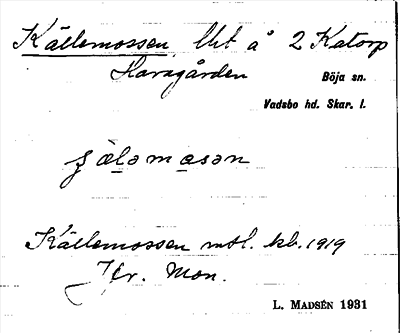 Källemossen, lht å 2 Katorp
Haragården Böja sn.
Vadsbo hd. Skar. l.
Källemossen mtl. kb. 1919
Hr. Mon.
L. MADSÉN 1931